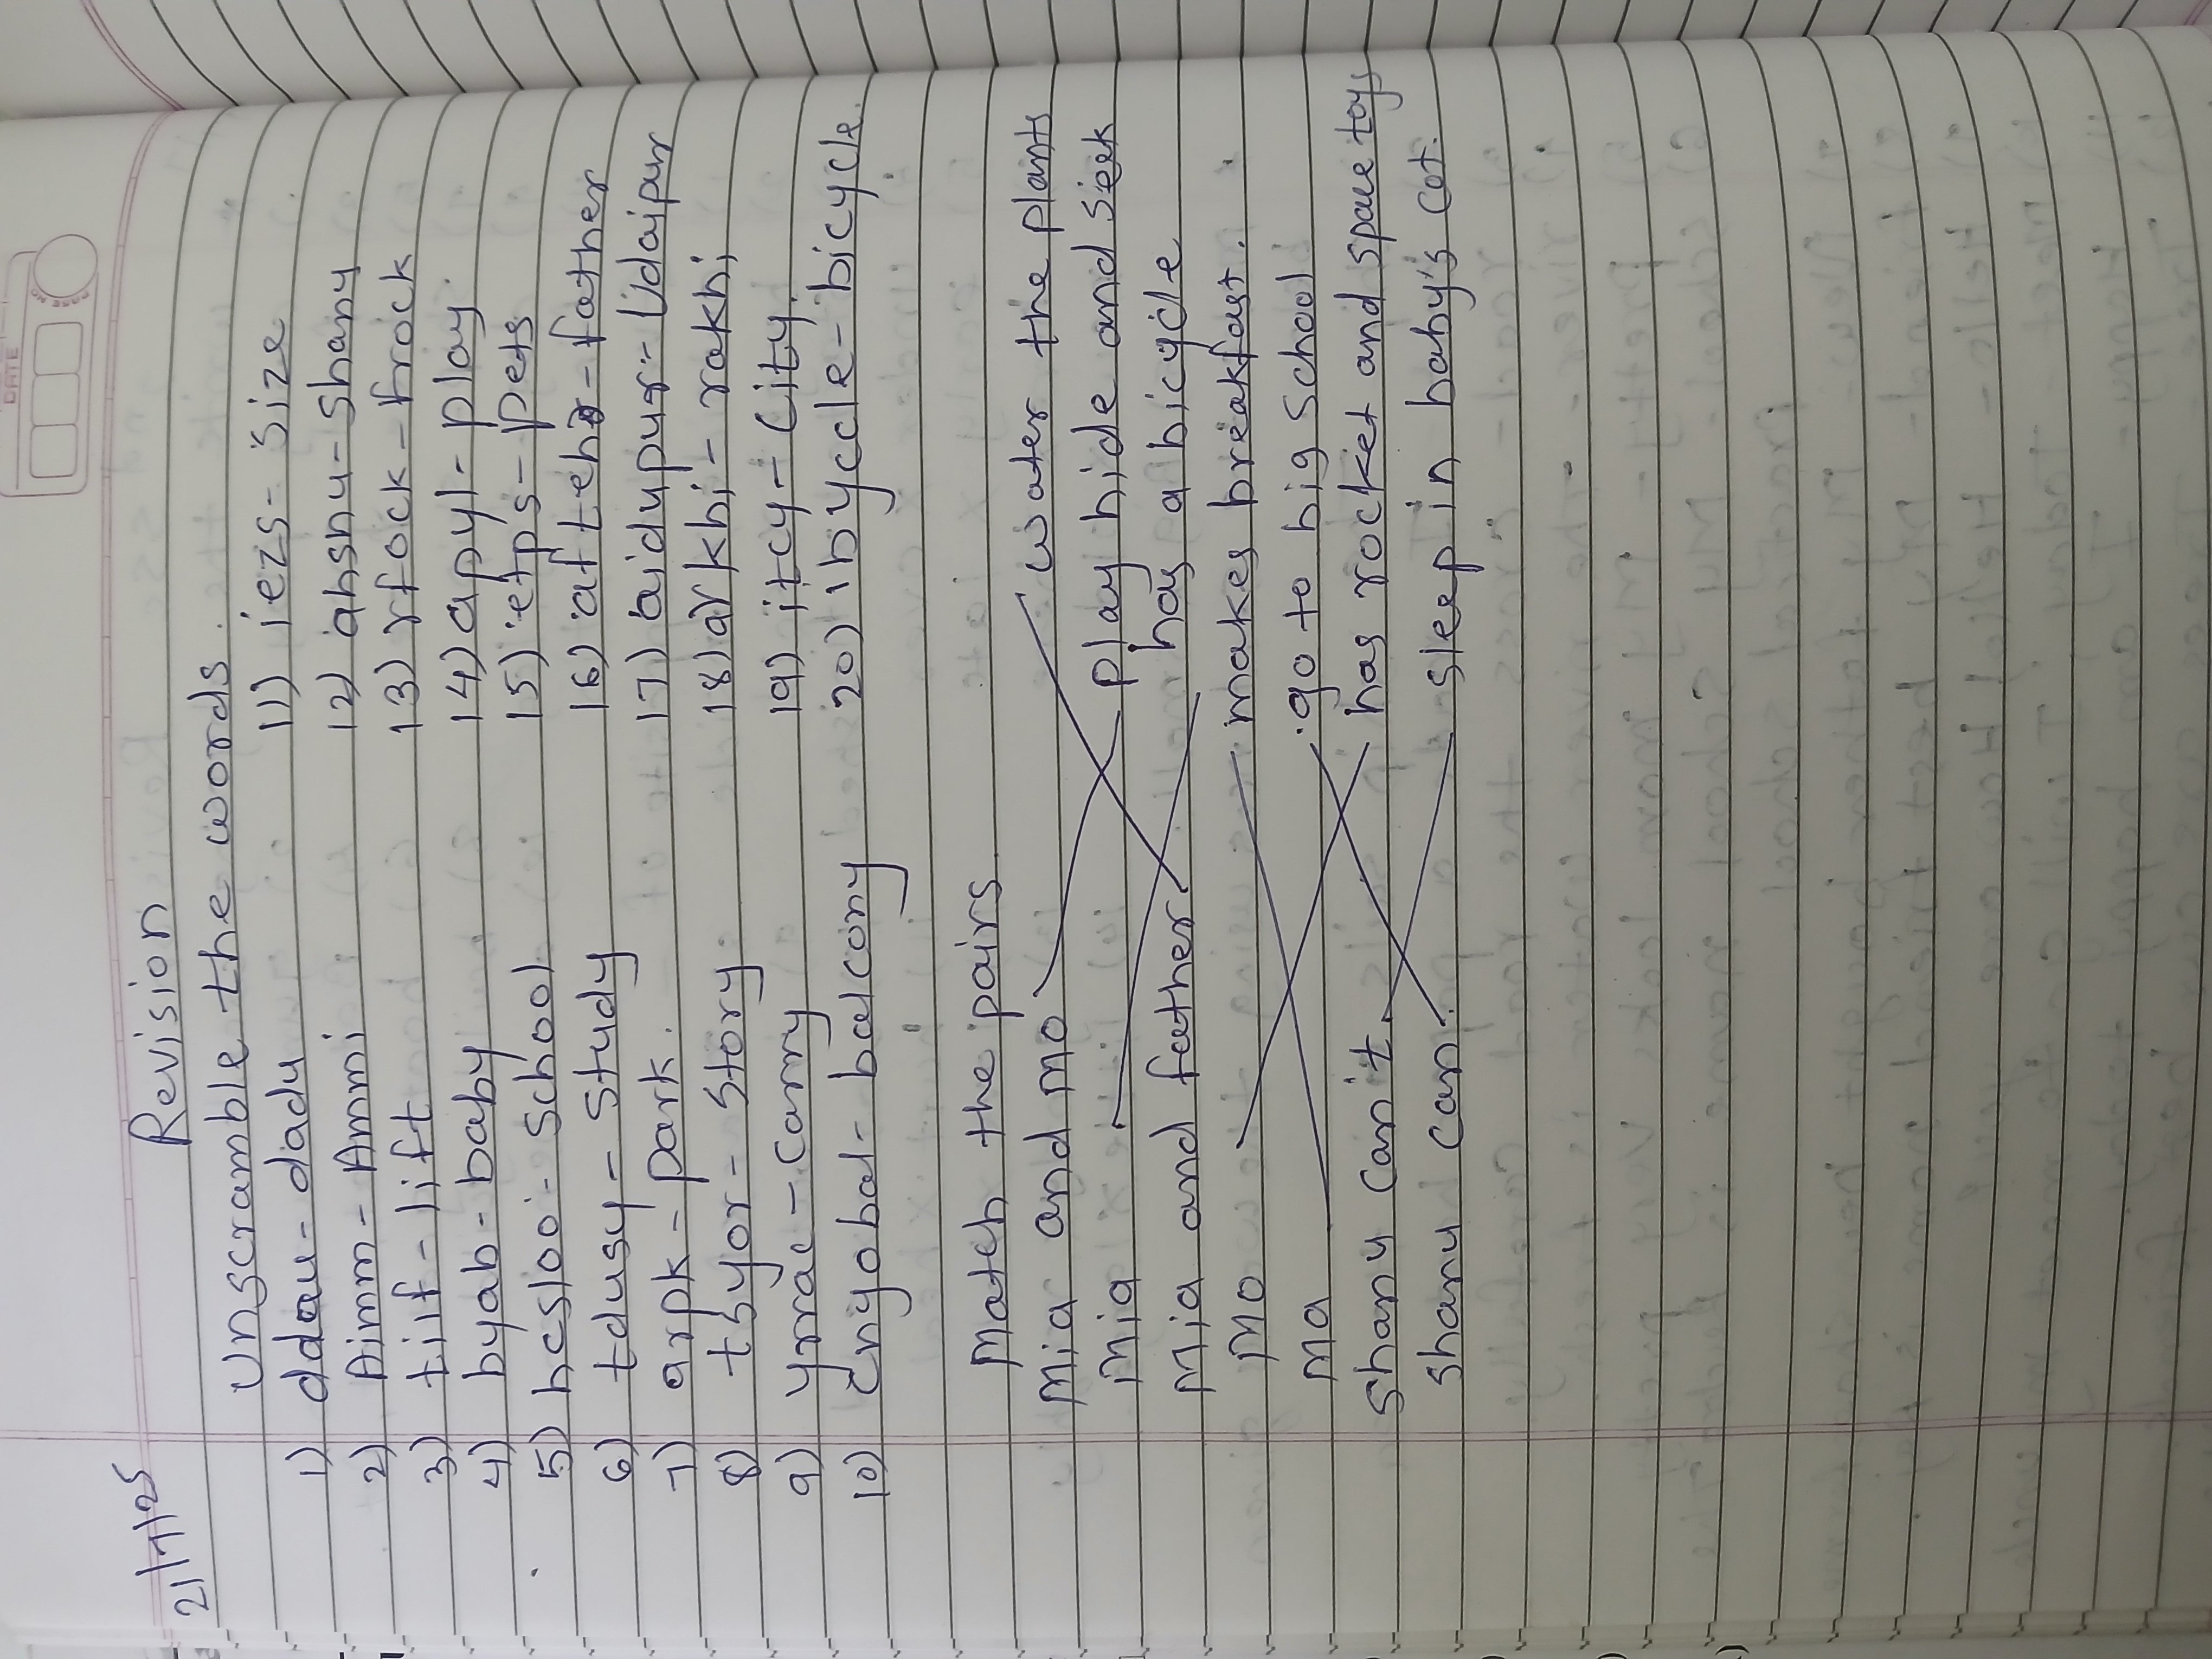 DATE
21/7/25
Revision
Unscramble the words.
1) ddau - dadu 11) iezs - size
2) Aimm - Ammi 12) ahsnu - Shanu
3) tilf - lift 13) rfock - frock
4) byab - baby 14) apyl - play.
5) hcsloo - School 15) etps - pets
6) tdusy - Study 16) afteh - father
7) arpk - park. 17) aidupur - Udaipur
8) tsyor - Story 18) arkhi - rakhi
9) yrrac - Carry 19) itcy - City.
10) cnyobal - balcony 20) ibyccle - bicycle.
Match the pairs.
Mia and Mo water the plants
Mia play hide and seek
Mia and father has a bicycle
Mo makes breakfast.
Ma go to big School
Shanu can't has rocket and space toys
Shanu can. sleep in baby's cot.